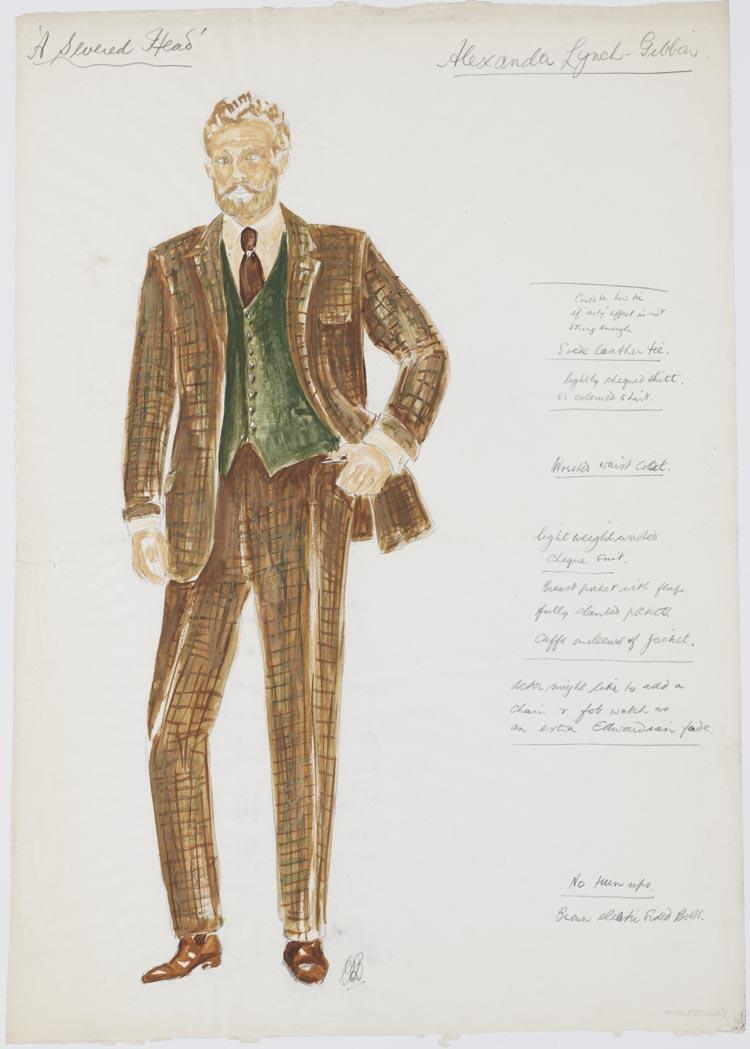 'A Severed Head'
Alexander Lynch-Gibbon.
Could be bow tie
if 'arty' effect is not
strong enough.
Suede leather tie.
lightly chequed shirt.
or coloured shirt.
Worsted waist coat.
light weight worsted
Cheque Suit.
Breast pocket with flap.
fully slanted pockets
Cuffs on sleeves of jacket.
Actor might like to add a
chain & fob watch as
an extra Edwardian
No turn ups.
Brown elastic sided Boots.